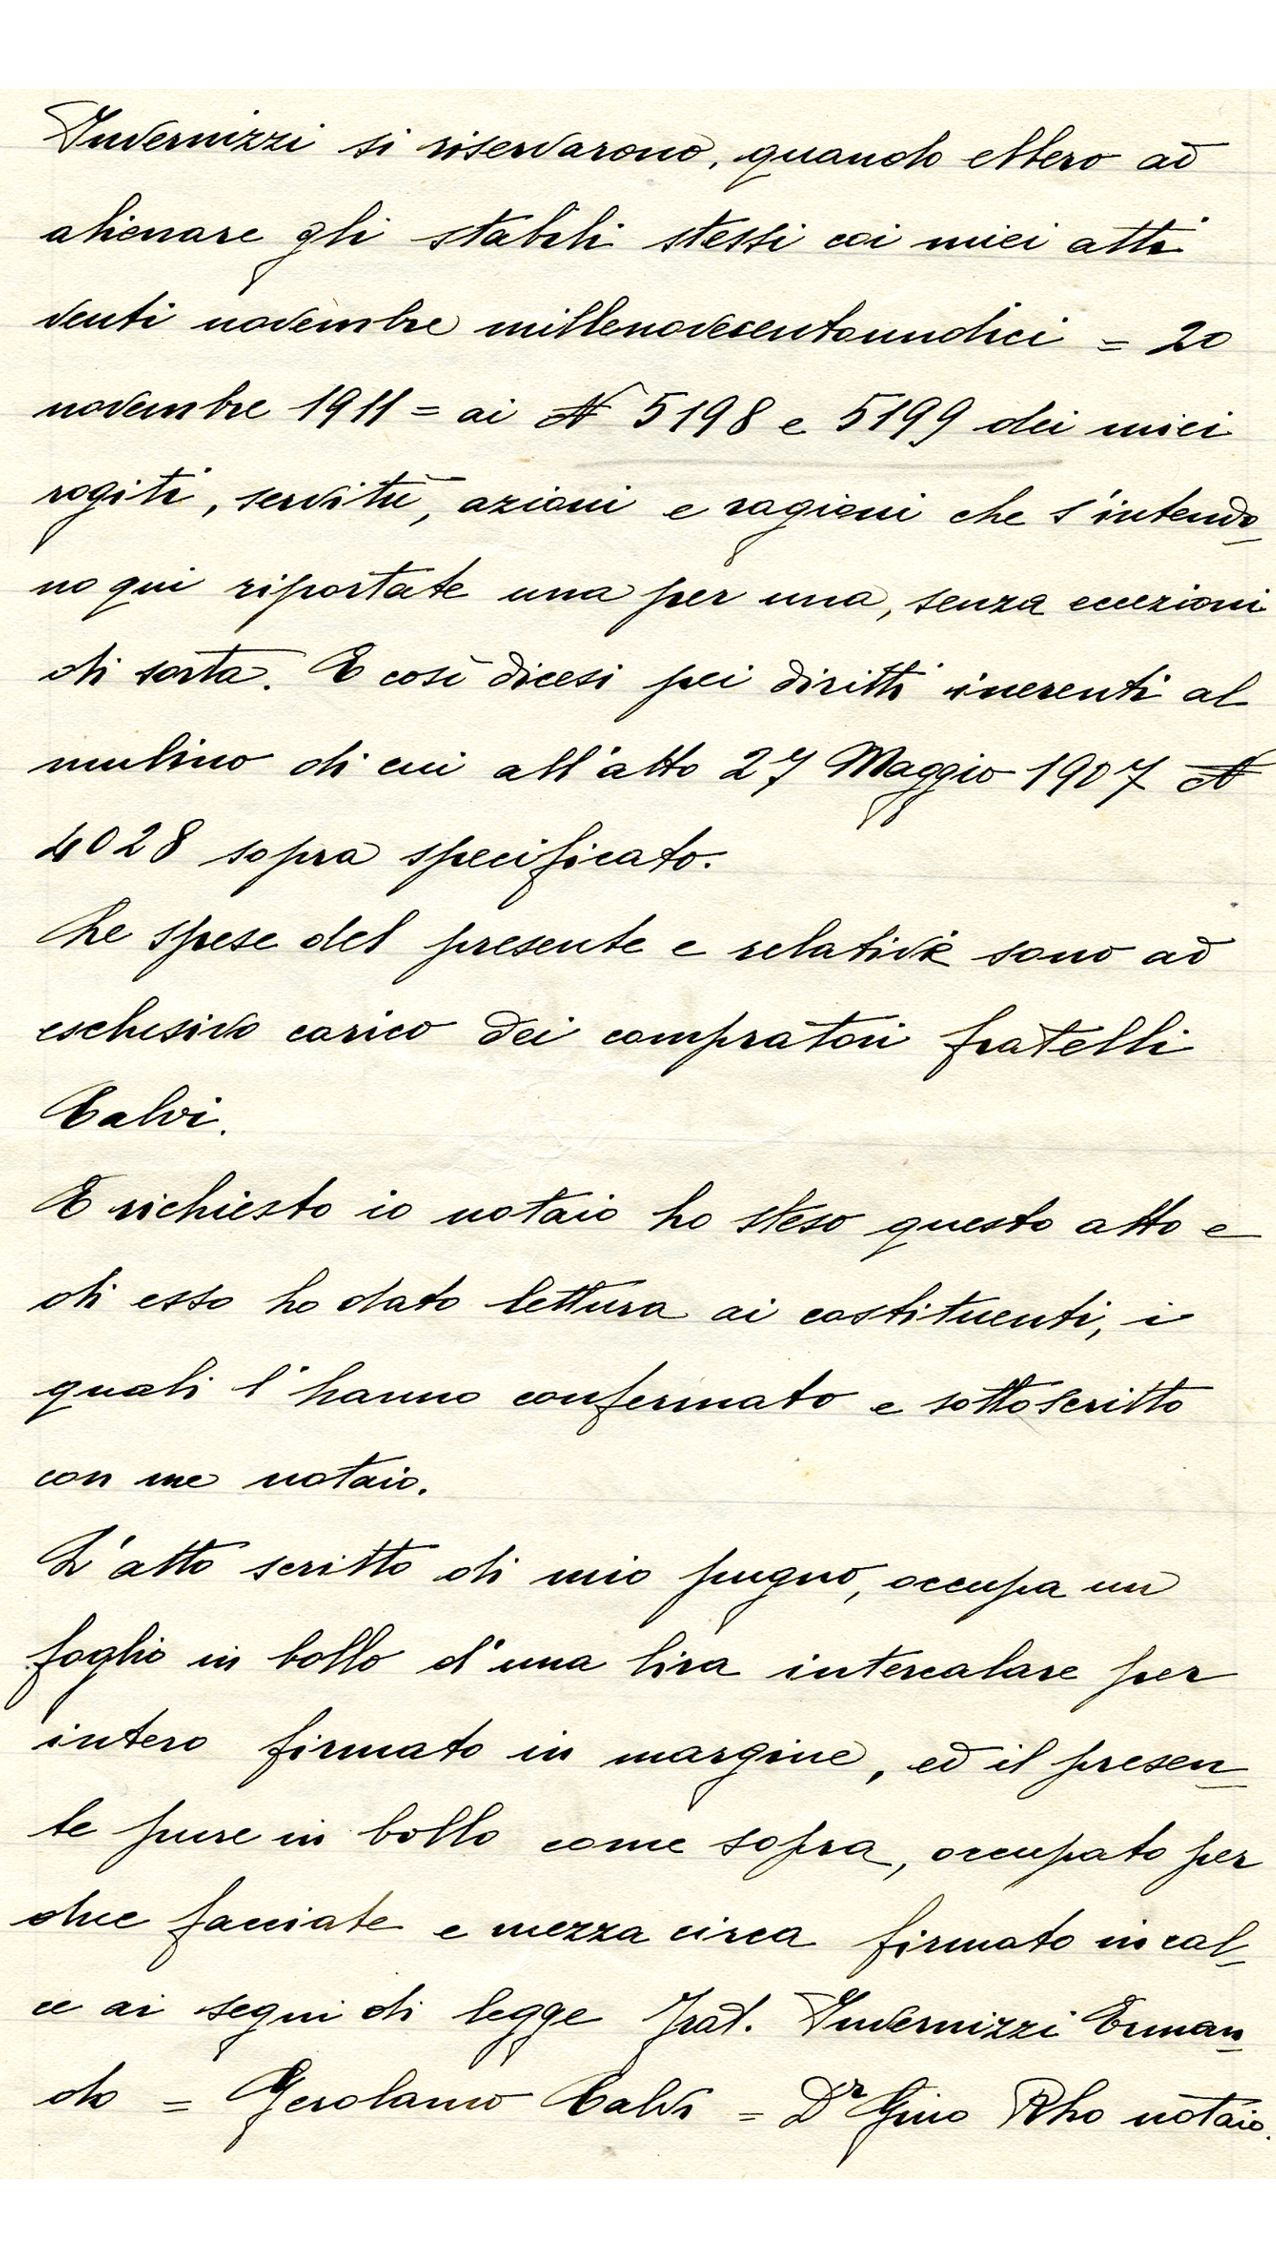 Invernizzi si riservarono, quando ebbero ad
alienare gli stabili stessi coi miei atti
venti novembre millenovecentoundici = 20
novembre 1911 = ai N 5198 e 5199 dei miei
rogiti, servitù, azioni e ragioni che s'intendo_
no qui riportate una per una, senza eccezioni
di sorta. E così dicesi pei diritti inerenti al
mulino di cui all'atto 27 Maggio 1907 N
4028 sopra specificato.
Le spese del presente e relative sono ad
esclusivo carico dei compratori fratelli
Calvi.
E richiesto io notaio ho steso questo atto e
di esso ho dato lettura ai costituenti, i
quali l'hanno confermato e sottoscritto
con me notaio.
L'atto scritto di mio pugno, occupa un
foglio in bollo d'una lira intercalare per
intero firmato in margine, ed il presen_
te pure in bollo come sopra, occupato per
due facciate e mezza circa firmato in cal_
ce ai segni di legge Invernizzi Erman_
do = Gerolamo Calvi = Dr Gino Rho notaio.